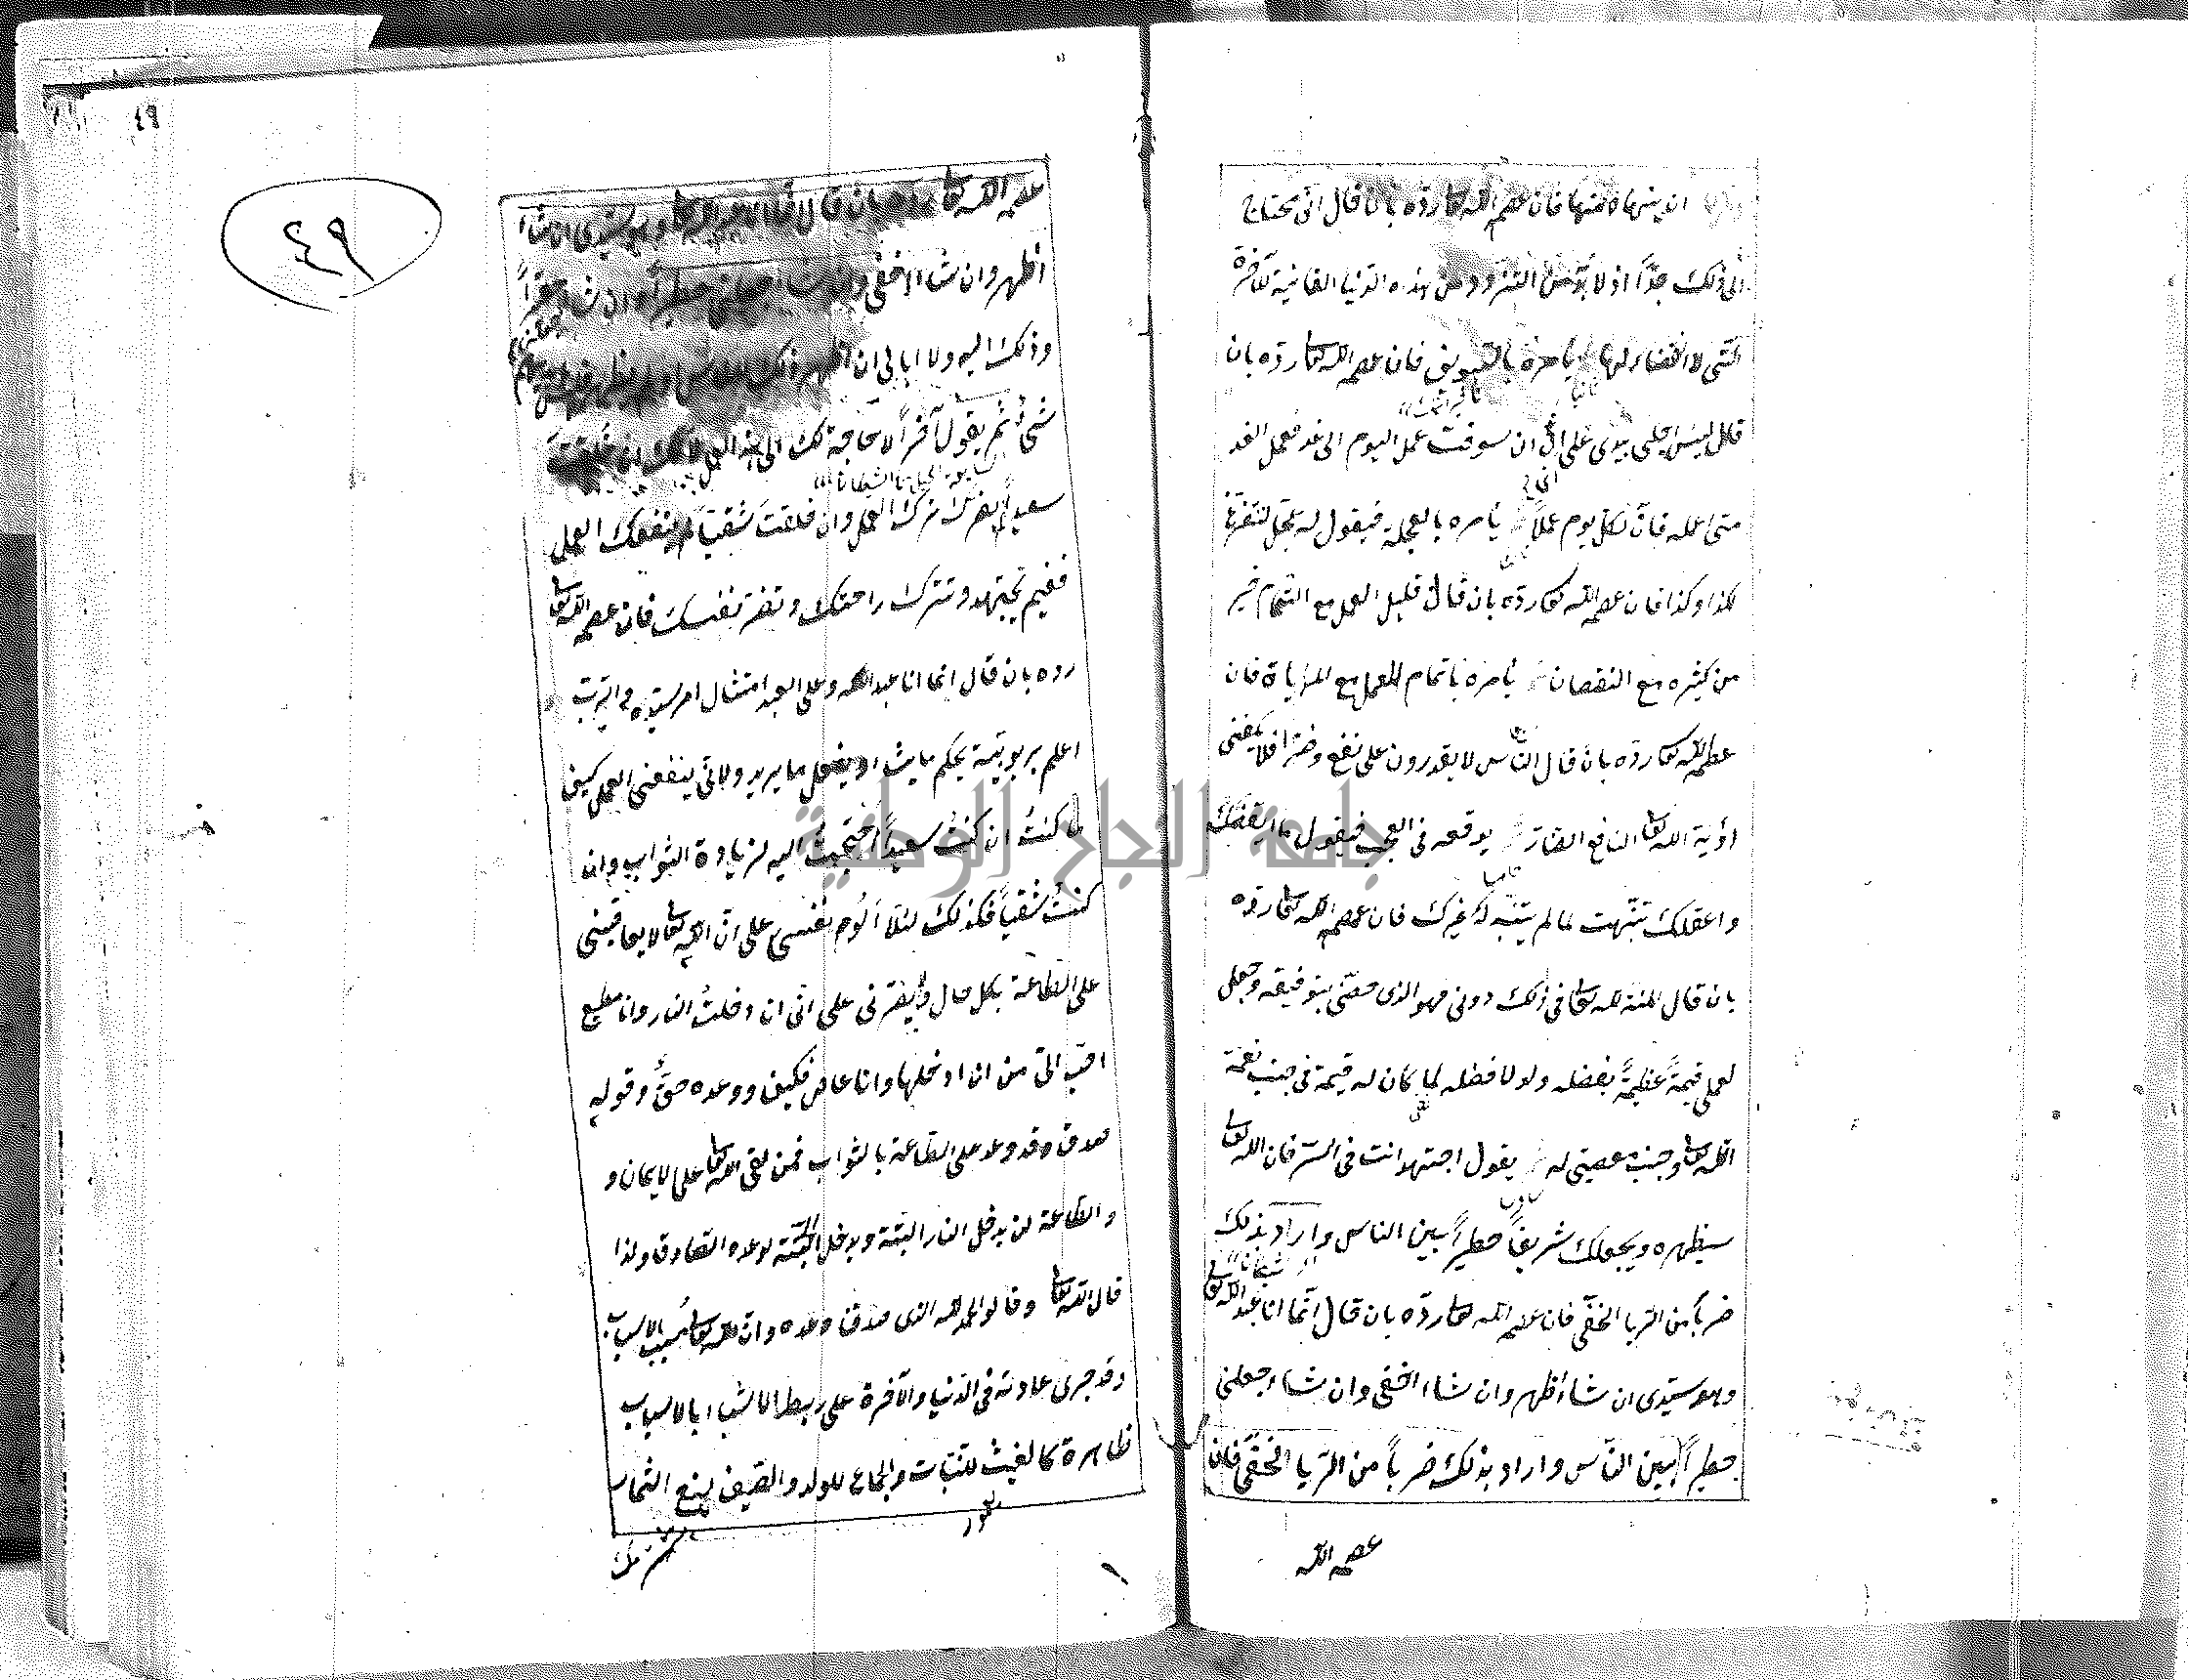 ان ينهاه عنها فان عصمه الله تعالى رده بان قال انى محتاج
الى ذلك جدّاً اذ لا بدّ من التزود من هذه الدنيا الفانية للآخرة
التى لا انقضاء لها يأمره بالتسويف فان عصمه الله تعالى رده بان
ثانيا
قال ليس اجلى بيدى على انّى ان سوفت عمل اليوم الى غد فعمل الغد
متى اعمله فانّ لكل يوم عملاً يأمره بالعجلة فيقول له عجل لتتفرغ
لكذا وكذا فان عصمه الله تعالى رده بان قال قليل العمل مع التمام خير
من كثيره مع النقصان يأمره باتمام العمل مع المراياة فان
عصمه الله تعالى رده بان قال النّاس لا يقدرون على نفع وضر افلا يكفنى
رؤية الله تعالى النافع الضارّ يوقعه فى العجب فيقول ما ايقظك
خامسا
واعقلك تنبّهت لما لم يتنبّه له غيرك فان عصمه الله تعالى رده
بان قال المنة لله تعالى فى ذلك دونى فهو الذى خصّنى بتوفيقه وجعل
لعملى قيمةً عظيمةً بفضله ولولا فضله لما كان له قيمة فى جنب نعمة
الله تعالى وجنب معصيتى له يقول اجتهد انت فى السر فان الله تعالى
سادسا
سيظهره ويجعلك شريفاً خطيراً بين الناس واراد بذلك
ضرباً من الريا الخفى فان عصمه الله تعالى رده بان قال انّما انا عبد الله تعالى
وهو سيّدى ان شاء أظهر وان شاء اخفى وان شاء جعلنى
خطيراً بين النّاس واراد بذلك ضرباً من الرّيا الخفىّ فان
عصمه الله
٤٩
٤٩
عصمه الله تعالى رده بان قال انما انا عبد الله تعالى وهو سيدى ان شاء
اظهر وان شاء اخفى وان شاء جعلنى خطيراً وان شاء حقيراً
وذلك اليه ولا ابالى ان
شئ ثم يقول آخراً لا حاجة لك الى هذا العمل لانك ان خلقت
سعيداً لم يضرك ترك العمل وان خلقت شقيّاً لم ينفعك العمل
ففيم تجتهد وتترك راحتك وتضر نفسك فان عصمه الله تعالى
رده بان قال انما انا عبد الله وعلى العبد امتثال امر سيده والرب
اعلم بربوبيته يحكم ما يشاء ويفعل ما يريد ولانى ينفعنى العمل كيف
ما كنتُ ان كنتُ سعيداً احتجتُ اليه لزيادة الثواب وان
كنتُ شقيّاً فكذلك لئلا ألوم نفسى على انّ الله تعالى لا يعاقبنى
على الطاعة بكل حال ولا يضرنى على انّى ان دخلتُ النار وانا مطيع
احبّ الىّ من ان ادخلها وانا عاصٍ فكيف ووعده حقٌّ وقوله
صدق وقد وعد على الطاعة بالثواب فمن لقى الله تعالى على الايمان و
والطاعة لن يدخل النار البتة ويدخل الجنّة لوعده الصادق ولذا
قال الله تعالى وقالوا الحمد لله الذى صدقنا وعده وان الله تعالى مُسبب الاسباب
وقد جرى عادته فى الدّنيا والآخرة على ربط الاشياء بالاسباب
ظاهرة كالغيث للنّبات والجماع للولد والصيف لينع الثمار
جامعة النجاح الوطنية